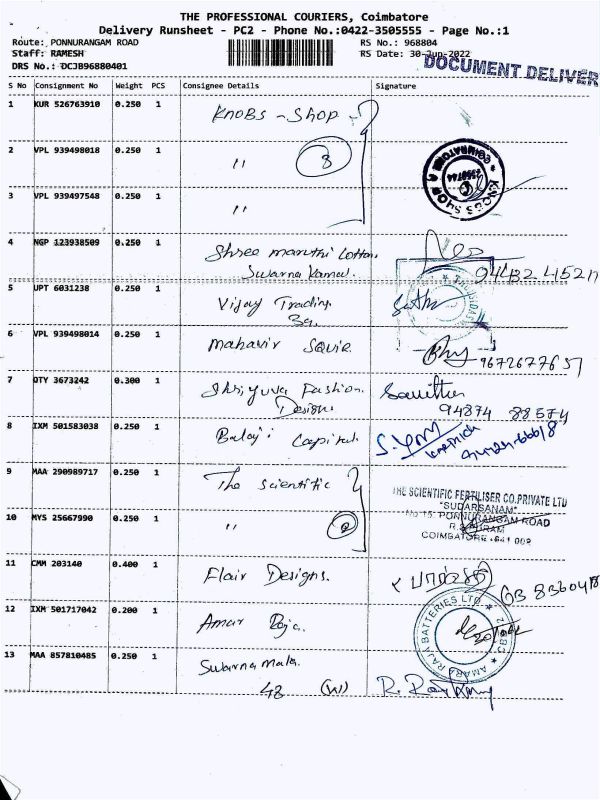 THE PROFESSIONAL COURIERS, Coimbatore
Delivery Runsheet - PC2 - Phone No.:0422-3505555 - Page No.:1
Route: PONNURANGAM ROAD
RS No.: 968804
Staff: RAMESH
RS Date: 30-Jun-2022
DRS No.: DCJB96880401
DOCUMENT DELIVER
S No Consignment No Weight PCS Consignee Details Signature
1 KUR 526763910 0.250 1 Knobs - Shop
2 VPL 939498018 0.250 1 " 3
KNOBS SHOP
COIMBATORE
3 VPL 939497548 0.250 1 "
4 NGP 123938509 0.250 1 Shree maruthi Cotton
Swarna Kamal
5 UPT 6031238 0.250 1 Vijay Trading
6 VPL 939498014 0.250 1 Mahavir Squre
9672677657
7 DTY 3673242 0.300 1 Shriyuva Fashion
Design
94874 88574
8 IXM 501583038 0.250 1 Balaji Capital
9 MAA 290989717 0.250 1 The Scientific
THE SCIENTIFIC FERTILISER CO.PRIVATE LTD
"SUDARSANAM"
No 15, PONNURANGAM ROAD
10 MYS 25667990 0.250 1 " 2
R.S. PURAM
COIMBATORE-641 002
11 CMM 203140 0.400 1 Flair Designs.
12 IXM 501717042 0.200 1 Amar Raja
AMARA RAJA BATTERIES LTD
13 MAA 857810485 0.250 1 Swarna mala
48 (W)